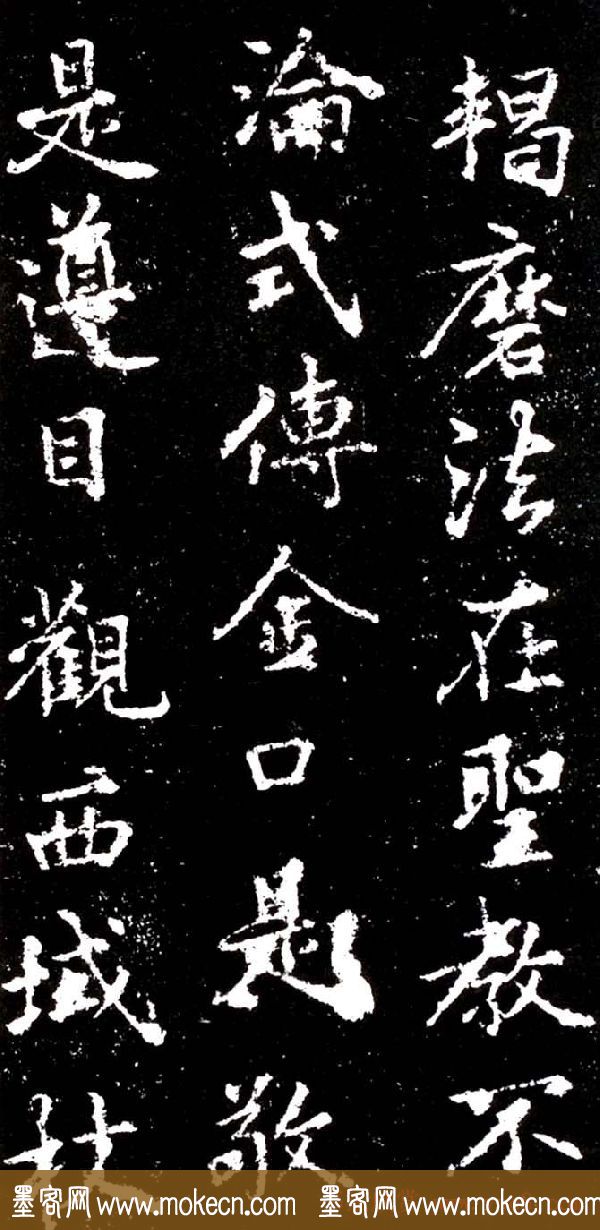 羯磨法在聖教不
淪式傳金口是敬
是遵目觀西域
墨客网 www.mokecn.com 墨客网 www.mokecn.com